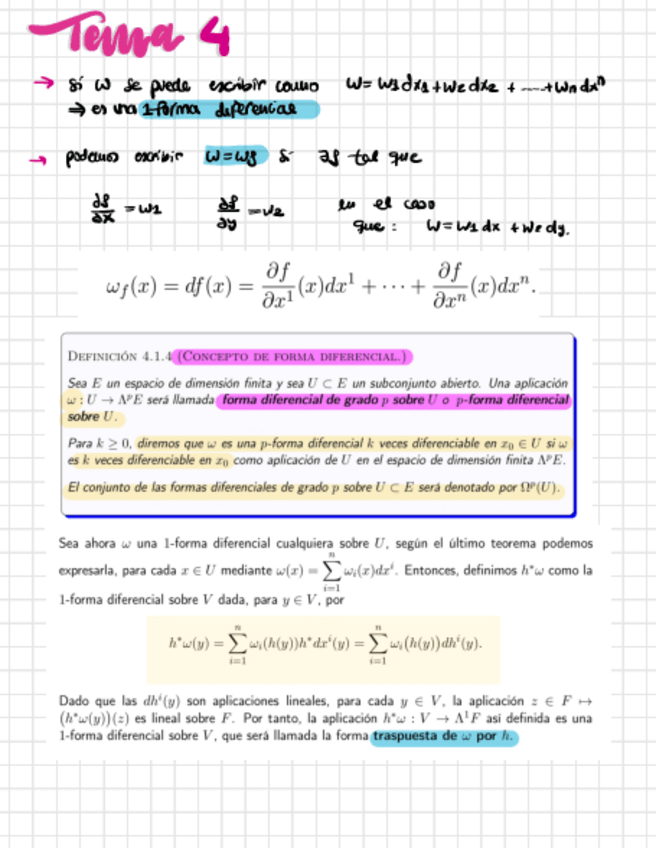 Tema 4
→ si ω se puede escribir como ω= ω1dx1+ω2dx2 + ---+ωn dxⁿ
⇒ es una 1-forma diferencias
→ podemos escribir ω=ωf si ∃f tal que
∂f/∂x = ω1 ∂f/∂y = ω2 en el caso
que: ω=ω1 dx + ω2 dy.
ω_f(x) = df(x) = ∂f/∂x¹ (x)dx¹ + ··· + ∂f/∂xⁿ (x)dxⁿ.
Definición 4.1.4 (Concepto de forma diferencial.)
Sea E un espacio de dimensión finita y sea U ⊂ E un subconjunto abierto. Una aplicación
ω : U → ΛᵖE será llamada forma diferencial de grado p sobre U o p-forma diferencial
sobre U.
Para k ≥ 0, diremos que ω es una p-forma diferencial k veces diferenciable en x₀ ∈ U si ω
es k veces diferenciable en x₀ como aplicación de U en el espacio de dimensión finita ΛᵖE.
El conjunto de las formas diferenciales de grado p sobre U ⊂ E será denotado por Ωᵖ(U).
Sea ahora ω una 1-forma diferencial cualquiera sobre U, según el último teorema podemos
expresarla, para cada x ∈ U mediante ω(x) = ∑_{i=1}^{n} ωᵢ(x)dxⁱ. Entonces, definimos h*ω como la
1-forma diferencial sobre V dada, para y ∈ V, por
h*ω(y) = ∑_{i=1}^{n} ωᵢ(h(y))h*dxⁱ(y) = ∑_{i=1}^{n} ωᵢ(h(y))dhⁱ(y).
Dado que las dhⁱ(y) son aplicaciones lineales, para cada y ∈ V, la aplicación z ∈ F ↦
(h*ω(y))(z) es lineal sobre F. Por tanto, la aplicación h*ω : V → Λ¹F así definida es una
1-forma diferencial sobre V, que será llamada la forma traspuesta de ω por h.